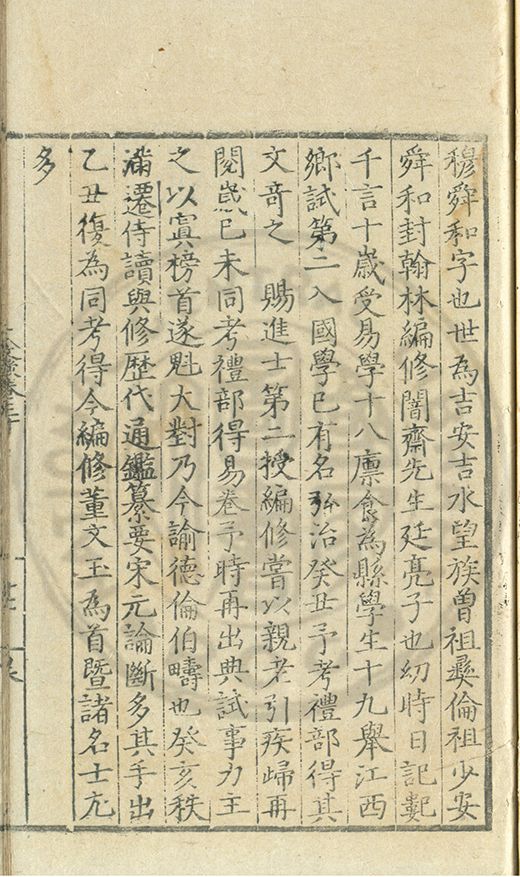 穆舜和字也世為吉安吉水望族曾祖彞倫祖少安
舜和封翰林編修闇齋先生廷亮子也幼時日記數
千言十歲受易學十八廪食為縣學生十九舉江西
鄉試第二入國學已有名弘治癸丑予考禮部得其
文竒之　賜進士第二授編修嘗以親老引疾歸再
閱歲己未同考禮部得易卷予時再出典試事力主
之以寘榜首遂魁大對乃今諭德倫伯疇也癸亥秩
滿遷侍讀與修歴代通鑑纂要宋元論斷多其手出
乙丑復為同考得今編修董文玉為首暨諸名士尤
多